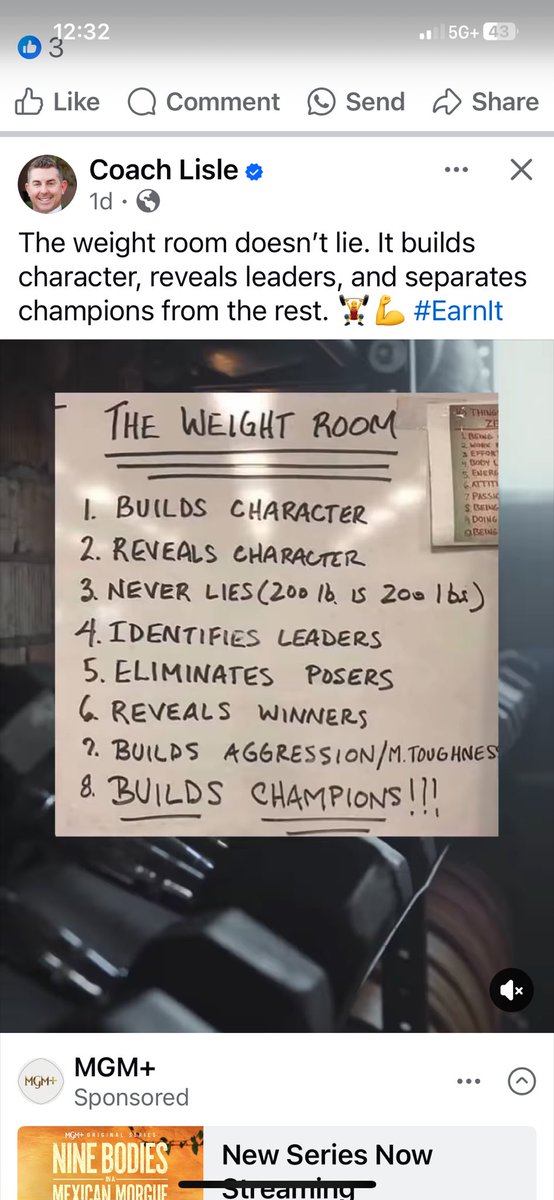 12:32
5G+ 43
3
Like Comment Send Share
Coach Lisle
1d
The weight room doesn’t lie. It builds
character, reveals leaders, and separates
champions from the rest. 🏋️💪 #EarnIt
THE WEIGHT ROOM
1. BUILDS CHARACTER
2. REVEALS CHARACTER
3. NEVER LIES (200 lb. IS 200 lbs)
4. IDENTIFIES LEADERS
5. ELIMINATES POSERS
6. REVEALS WINNERS
7. BUILDS AGGRESSION/M.TOUGHNES
8. BUILDS CHAMPIONS!!!
THING
ZE
1. BEING
2. WORK
3. EFFOR
4. BODY L
5. ENERG
6. ATTIT
7. PASSIO
8. BEING
9. DOING
BEING
MGM+
MGM+
Sponsored
MGM+ ORIGINAL SERIES
NINE BODIES
IN A
MEXICAN MORGUE
New Series Now
Streaming